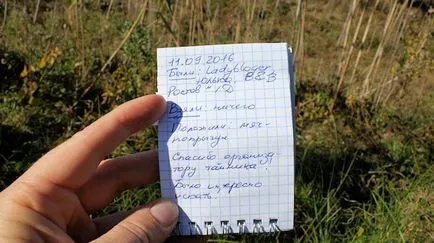 11.09.2016
Были: Ladybloger,
Юлька, ВСВ
Ростов н/Д
Взяли: ничего
Положили: мяч-
попрыгун
Спасибо организа
тору тайника.
Было интересно
искать.